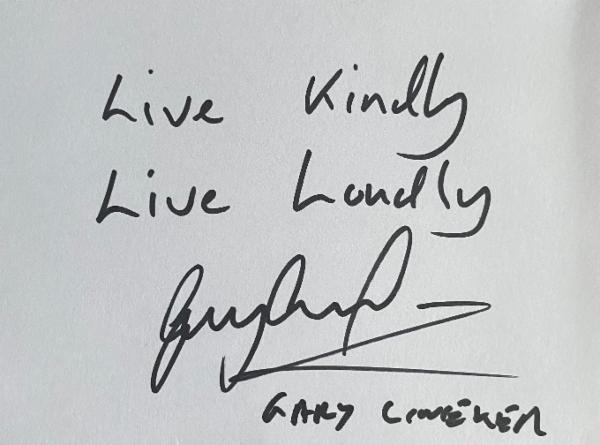 Live Kindly
Live Loudly
GARY LINEKER